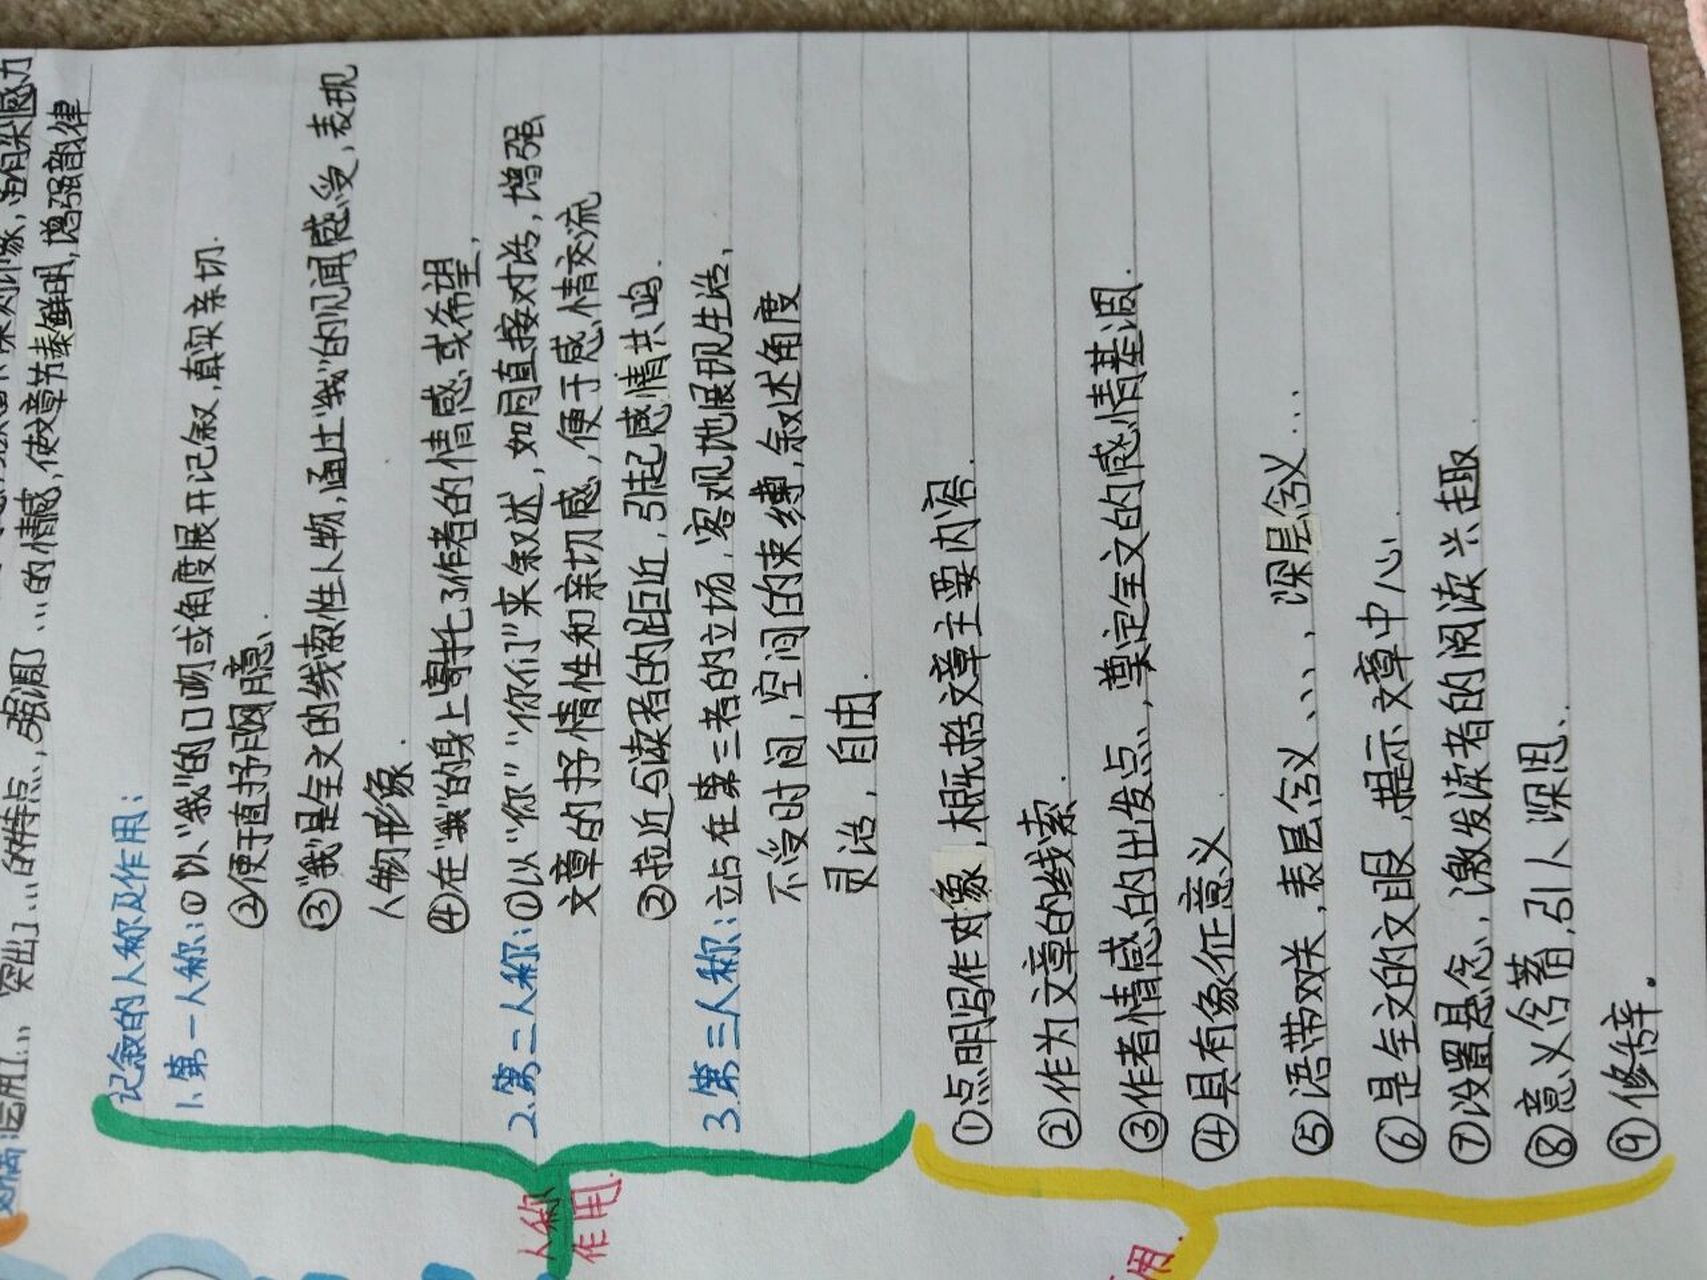 突出……的特点,强调……的情感,使文章节奏鲜明,增强韵律
记叙的人称及作用:
1.第一人称:①以“我”的口吻或角度展开记叙,真实亲切.
②便于直抒胸臆.
③“我”是全文的线索性人物,通过“我”的见闻感受,表现
人物形象.
④在“我”的身上寄托了作者的情感或希望,
2.第二人称:①以“你”“你们”来叙述,如同直接对话,增强
文章的抒情性和亲切感,便于感情交流
②拉近与读者的距近,引起感情共鸣.
3.第三人称:立站在第三者的立场,客观地展现生活,
不受时间,空间的束缚,叙述角度
灵活,自由.
人称
作用.
①点明写作对象,概括文章主要内容.
②作为文章的线索.
③作者情感的出发点,奠定全文的感情基调.
④具有象征意义.
⑤语带双关,表层含义、、、、深层含义...
⑥是全文的文眼,提示文章中心.
⑦设置悬念,激发读者的阅读兴趣.
⑧意义含蓄,引人深思.
⑨修辞.
用.